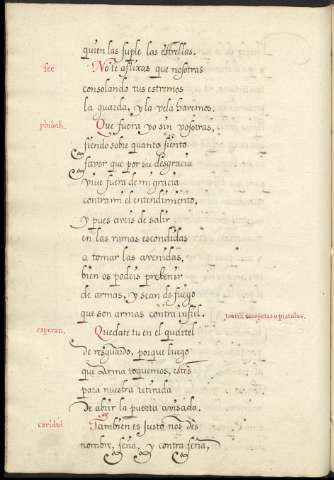 quien las suple las estrellas.
fee No te aflixas que nosotras
consolando tus estremos
la guarda, y la vela haremos.
Que fuera yo sin vosotras,
siendo sobre quanto siento
favor que por su desgracia
vive fuera de mi gracia
contra mi el entendimiento,
y pues aveis de salir
en las ramas escondidas
a tomar las avenidas,
bien os podeis prebenir
de armas, y sean de fuego
que son armas contra infiel.
esperan. Quedate tu en el quartel
de resguardo, porque luego
que Arma toquemos, estes
para nuestra retirada
de abrir la puerta avisada.
caridad. Tambien es justo nos des
nombre, seña, y contra seña,